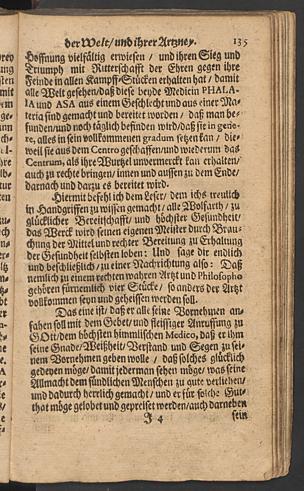 der Welt/ und ihrer Artzney. 135
Hoffnung vielfältig erwiesen / und ihren Sieg und
Triumph mit Ritterschafft der Ehren gegen ihre
Feinde in allen Kampff-Stücken erhalten hat / damit
alle Welt gesehen/ daß diese beyde Medicin PHALA-
IA und ASA aus einem Geschlecht und aus einer Ma-
teria sind gemacht und bereitet worden / daß man be-
funden/ und noch täglich befinden wird/ daß sie in
re, alles in sein vollkommenen gradum setzen kan / die-
weil sie aus dem Centro geschaffen/ und wiederum das
Centrum, als ihre Wurtzel unvermerckt kan erhalten/
auch zu rechte bringen/ innen und aussen zu dem Ende/
darnach und darzu es bereitet wird.
Hiermit befehl ich dem Leser/ dem ichs treulich
in Handgriffen zu wissen gemacht / alle Wolfarth / zu
glücklicher Bereitschafft/ und höchster Gesundheit/
das Werck wird seinen eigenen Meister durch Brau-
chung der Mittel und rechter Bereitung zu Erhaltung
der Gesundheit selbsten loben : Und sage dir endlich
und beschließlich / zu einer Nachrichtung also : Daß
nemlich zu einem rechten wahren Artzt und Philosopho
gehören fürnemlich vier Stücke / so anders der Artzt
vollkommen seyn und geheissen werden soll.
Das eine ist / daß er alle seine Vornehmen an-
fahen soll mit dem Gebet/ und fleissiger Anruffung zu
GOtt/ dem höchsten himmlischen Medico, daß er ihm
seine Gnade/ Weißheit/ Verstand und Segen zu sei-
nem Vornehmen geben wolle / daß solches glücklich
gedeyen möge / damit jederman sehen möge / was seine
Allmacht dem sündlichen Menschen zu gute verliehen/
und dadurch herrlich gemacht / und er für solche Gut-
that möge gelobet und gepreiset werden/ auch darneben
J 4 sein